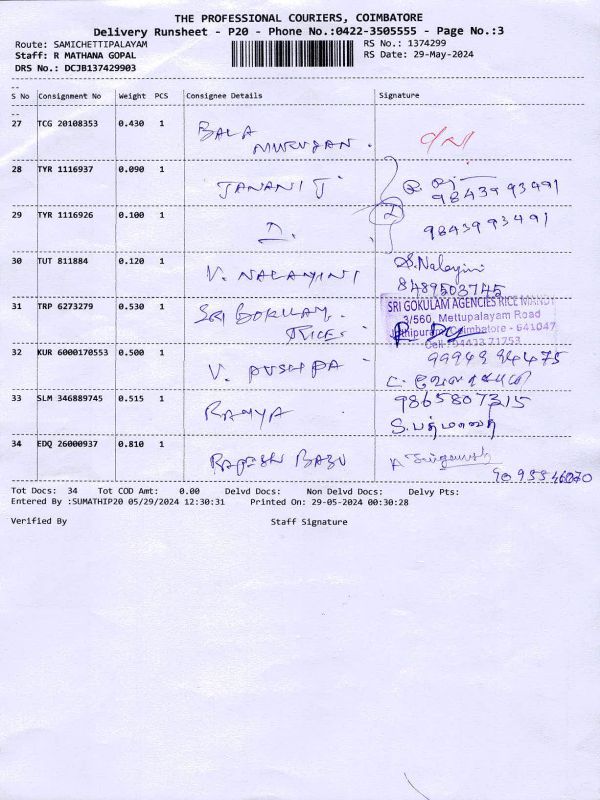 THE PROFESSIONAL COURIERS, COIMBATORE
Delivery Runsheet - P20 - Phone No.:0422-3505555 - Page No.:3
Route: SAMICHETTIPALAYAM
RS No.: 1374299
Staff: R MATHANA GOPAL
RS Date: 29-May-2024
DRS No.: DCJB137429903
S No Consignment No Weight PCS Consignee Details Signature
27 TCG 20108353 0.430 1 BALA
MURUGAN.
28 TYR 1116937 0.090 1 JANANI J
9843993991
29 TYR 1116926 0.100 1
9843993491
30 TUT 811884 0.120 1 V. NALAYINI S.Nalayini
8489503745
31 TRP 6273279 0.530 1 SRI GOKULAM RICE SRI GOKULAM AGENCIES RICE MANDY
3/560, Mettupalayam Road
Coimbatore - 641047
32 KUR 6000170553 0.500 1 V. PUSHPA 9994994475
33 SLM 346889745 0.515 1 RAMYA 9865807315
34 EDQ 26000937 0.810 1 RAJESH BABU
Tot Docs: 34 Tot COD Amt: 0.00 Delvd Docs: Non Delvd Docs: Delvy Pts:
Entered By :SUMATHIP20 05/29/2024 12:30:31 Printed On: 29-05-2024 00:30:28
Verified By Staff Signature